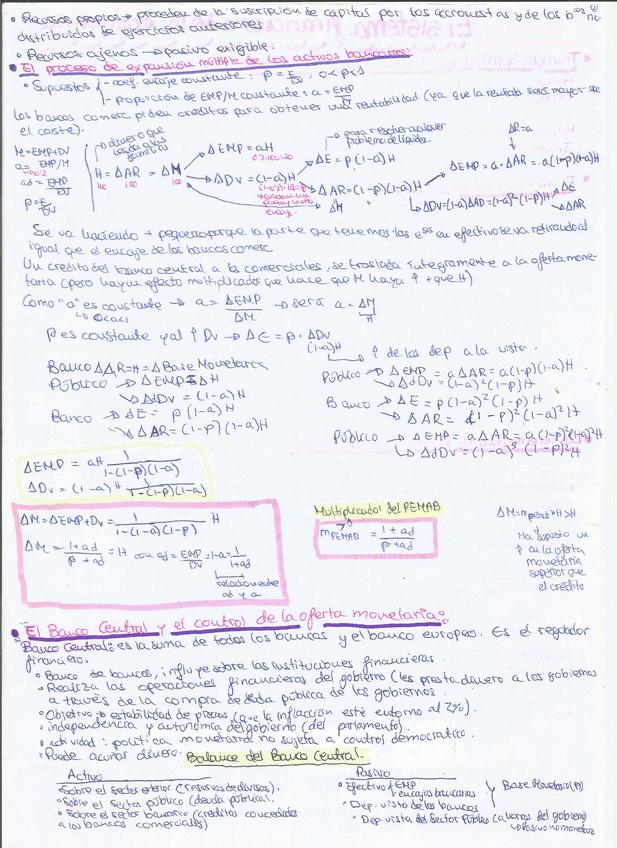 • Recursos propios → proceden de la suscripción de capital por los accionistas y de los b
distribuidos de ejercicios anteriores.
• Recursos ajenos → pasivo exigible.
• El proceso de expansión múltiple de los activos bancarios:
• Supuestos - coef. encaje constante: p = E/DV, 0<p<1
- proporción de EMP/M constante: a = EMP/M
Los bancos comerc. piden créditos para obtener una rentabilidad (ya que la rentab. será mayor que
el coste).
M = EMP + DV
a = EMP/M
ad = EMP/DV
p = E/DV
H = ΔAR = ΔM
100 100 100
ΔEMP = aH
ΔDV = (1-a)H
ΔE = p(1-a)H
ΔAR = (1-p)(1-a)H
ΔM
encaje
para resolver cualquier
problema de liquidez
ΔR = a
ΔEMP = a · ΔAR = a(1-p)(1-a)H
ΔDV = (1-a)ΔAD = (1-a)²(1-p)H
ΔE
ΔAR
Se va haciendo + pequeño porque la parte que tenemos las en efectivo se va retirando al
igual que el encaje de los bancos comerc.
Un crédito del banco central a los comerciales, se traslada íntegramente a la oferta mone-
taria (pero hay un efecto multiplicador que hace que M haya ↑ + que H)
Como "a" es constante → a = ΔEMP/ΔM → será a = ΔM/H
0<a<1
p es constante y al ↑ DV → ΔE = p · ΔDV
(1-a)H
↑ de los dep a la vista.
Banco ΔAR = H = Δ Base Monetaria
Público → ΔEMP = ΔH
↳ ΔdDV = (1-a)H
Banco → ΔE = p(1-a)H
↳ ΔAR = (1-p)(1-a)H
Público → ΔEMP = aΔAR = a(1-p)(1-a)H
↳ ΔdDV = (1-a)²(1-p)H
Banco → ΔE = p(1-a)²(1-p)H
↳ ΔAR = (1-p)²(1-a)²H
Público → ΔEMP = aΔAR = a(1-p)²(1-a)²H
↳ ΔdDV = (1-a)³(1-p)²H
ΔEMP = aH 1/(1-(1-p)(1-a))
ΔDV = (1-a)H 1/(1-(1-p)(1-a))
ΔM = ΔEMP + DV = 1/(1-(1-a)(1-p)) H
ΔM = (1+ad)/(p+ad) = H con ad = EMP/DV = 1-a = 1/(1+ad)
relación entre
ad y a
Multiplicador del PEMAB
mPEMAB = (1+ad)/(p+ad)
ΔM = mpemab · H > H
Ha supuesto un
↑ en la oferta
monetaria
superior que
el crédito
• El Banco Central y el control de la oferta monetaria:
Banco Central: es la suma de todos los bancos y el banco europeo. Es el regulador
financiero.
• Banco de bancos, influye sobre las instituciones financieras
• Realiza las operaciones financieras del gobierno (les presta dinero a los gobiernos
a través de la compra de deuda pública de los gobiernos.
• Objetivo: estabilidad de precios (que la inflación esté entorno al 2%).
• independencia y autonomía del gobierno (del parlamento).
• actividad: política monetaria no sujeta a control democrático.
• Puede acuñar dinero.
Balance del Banco Central.
Activo
• Sobre el sector exterior (reservas de divisas).
• Sobre el sector público (deuda pública).
• Sobre el sector bancario (créditos concedidos
a los bancos comerciales)
Pasivo
• Efectivo EMP
encajes bancarios
• Dep. vista de los bancos
Base Monetaria
• Dep. vista del Sector Público (ahorros del gobierno)
↳ Pasivo no monetario